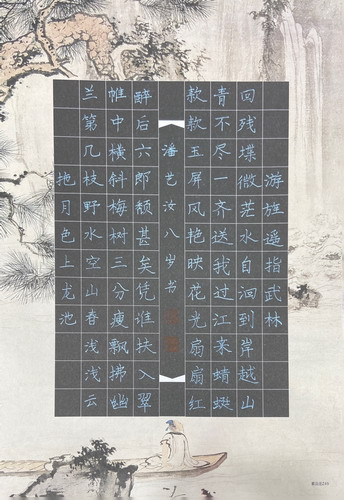 游旌遥指武林
回残堞微茫水自洄到岸越山
青不尽一齐送我过江来蜻蜓
款款玉屏风艳映花光扇扇红
潘艺汝八岁书
醉后六郎颓甚矣凭谁扶入翠
帷中横斜梅树三分瘦飘拂幽
兰第几枝野水空山春浅浅云
拖月色上龙池